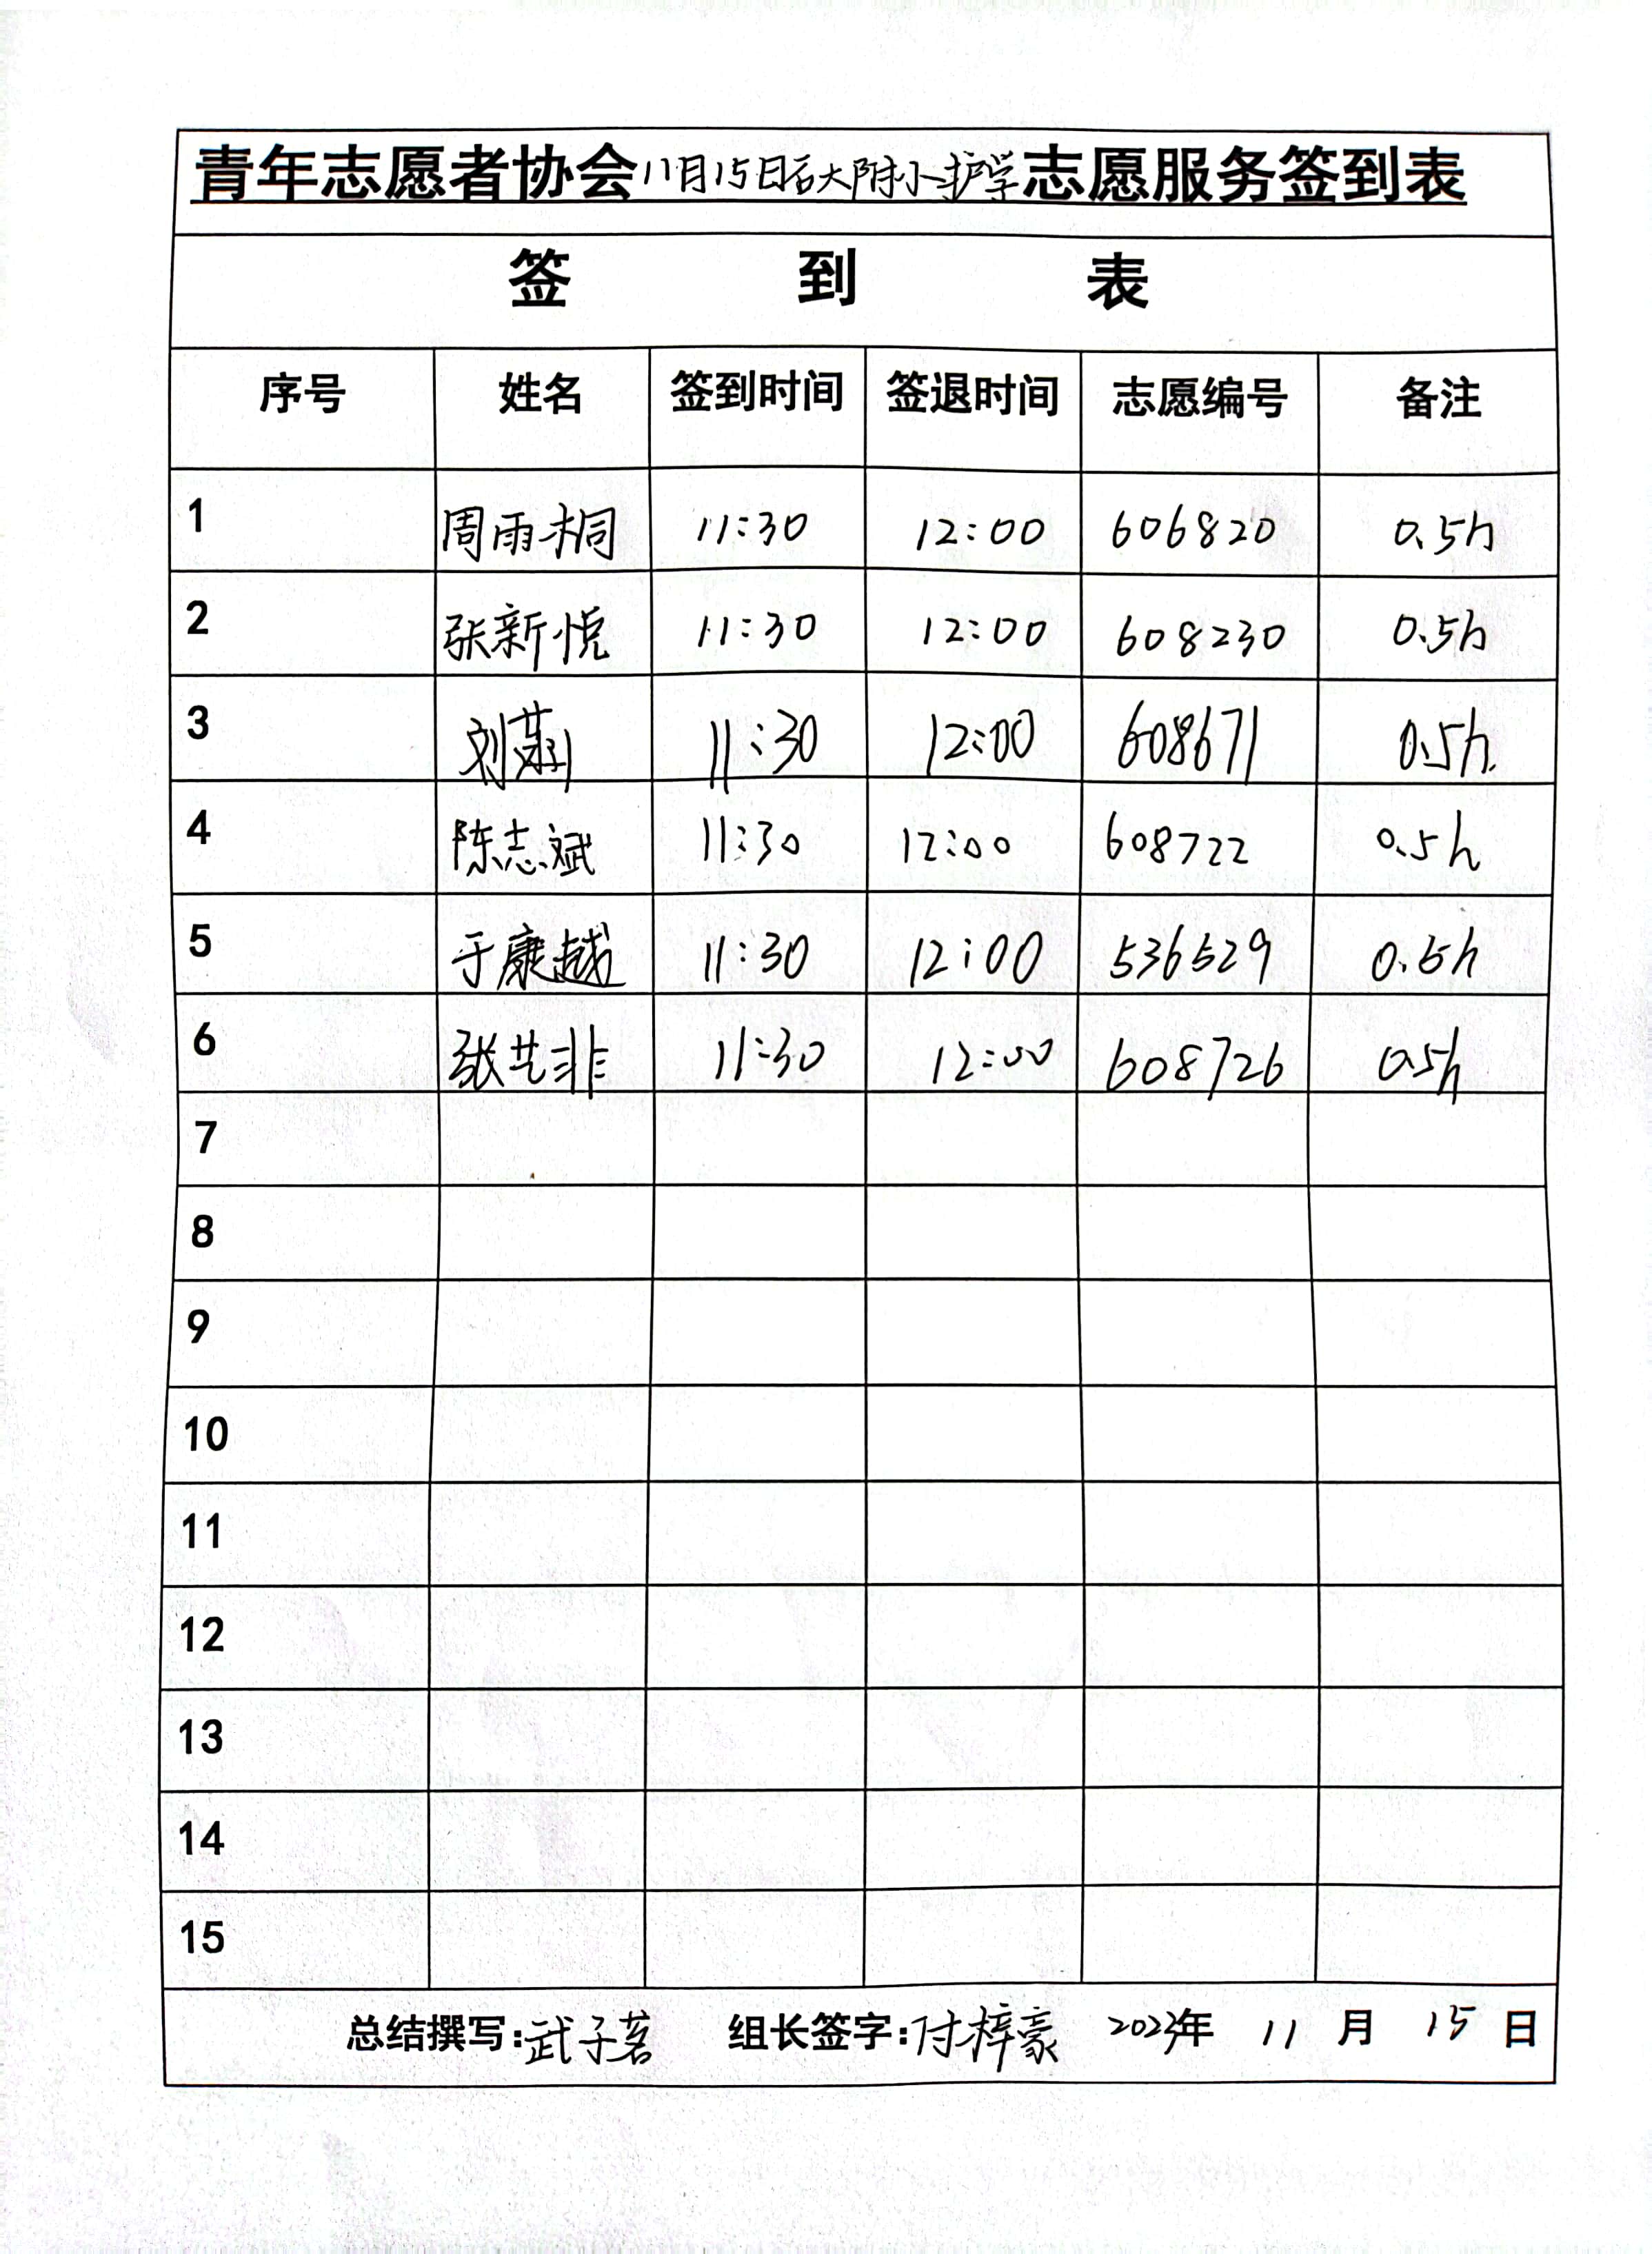 青年志愿者协会11月15日石大附小护学志愿服务签到表
签 到 表
序号 姓名 签到时间 签退时间 志愿编号 备注
1 周雨桐 11:30 12:00 606820 0.5h
2 张新悦 11:30 12:00 608230 0.5h
3 刘 11:30 12:00 608671 0.5h.
4 陈志斌 11:30 12:00 608722 0.5h
5 于康越 11:30 12:00 536529 0.5h
6 张艺非 11:30 12:00 608726 0.5h
7
8
9
10
11
12
13
14
15
总结撰写:武子茗 组长签字:付梓豪 2023年 11 月 15 日